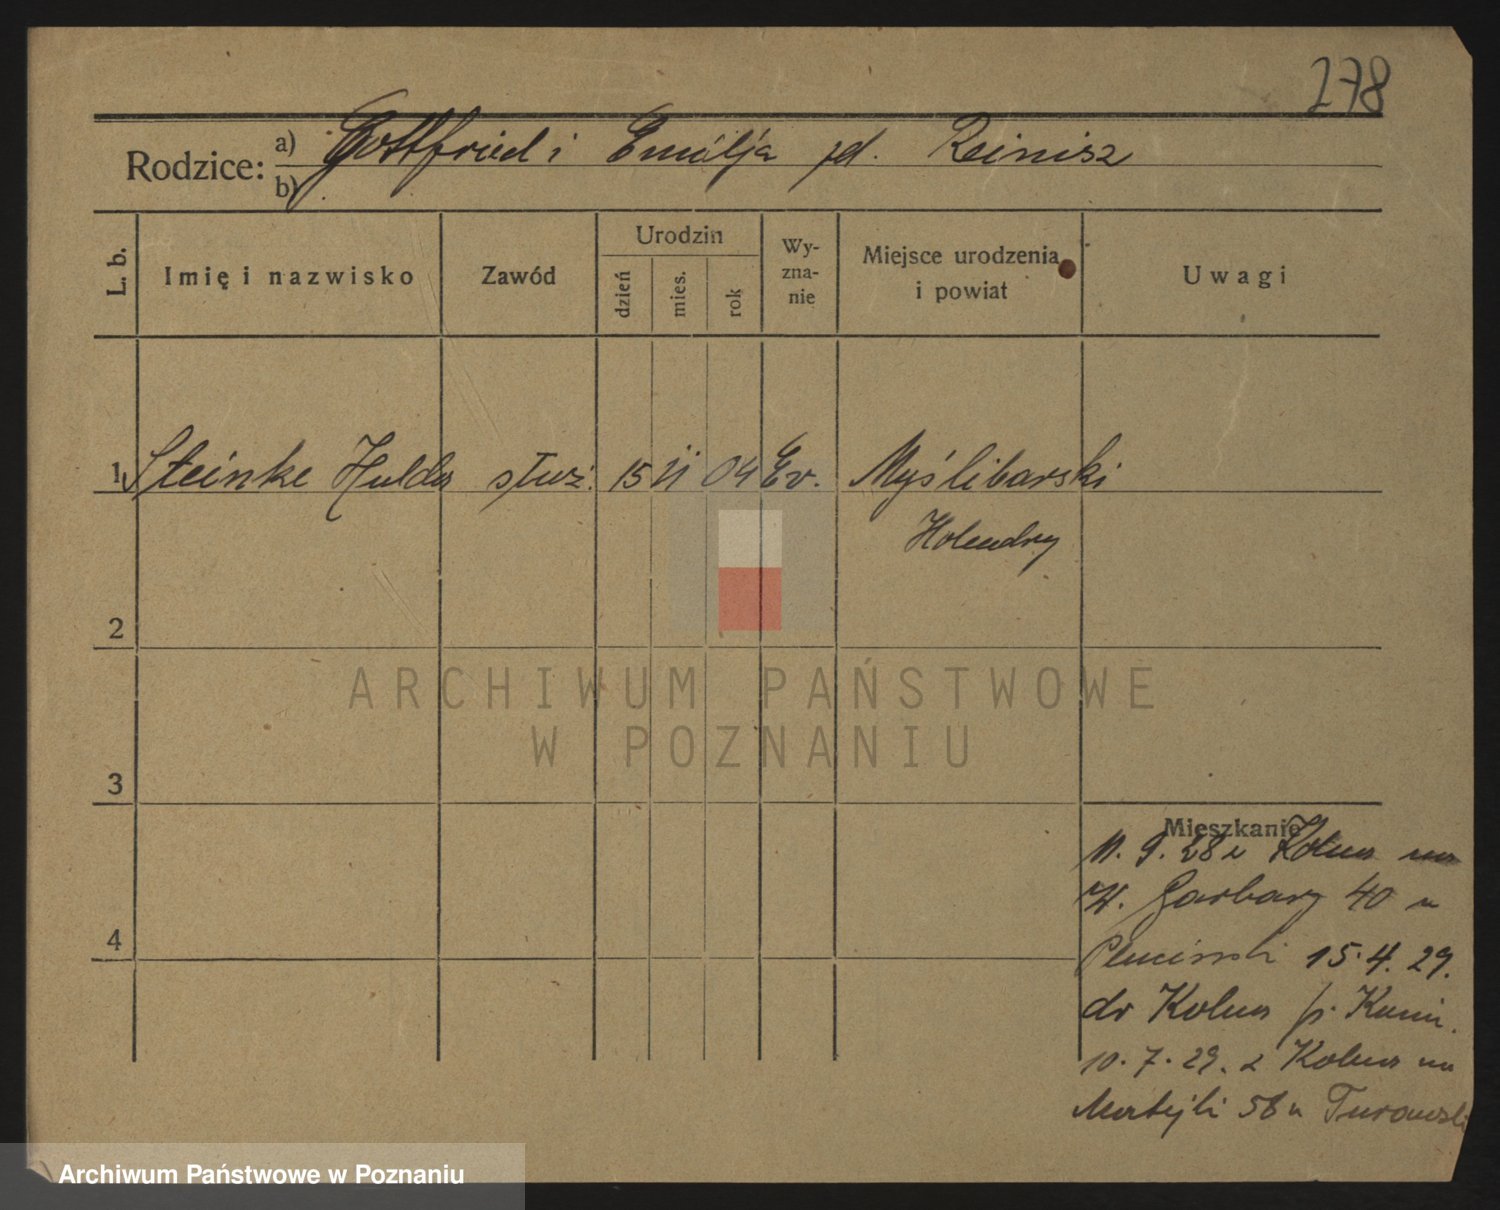 278
Rodzice:
a) Gottfried i Emilja zd. Reinisz
b)
L. b.
Imię i nazwisko
Zawód
Urodzin
dzień
mies.
rok
Wy-
zna-
nie
Miejsce urodzenia
i powiat
Uwagi
1 Steinke Hulda służ. 15 II 04 Ev. Myślibarski
Holendry
2
ARCHIWUM PAŃSTWOWE
W POZNANIU
3
Mieszkanie
11. 9. 28 z Koła na
W. Garbary 40 u
15.4. 29.
do Koła p. Konin.
10. 7. 29. z Koła na
Matejki 58 u Turowski
4
Archiwum Państwowe w Poznaniu